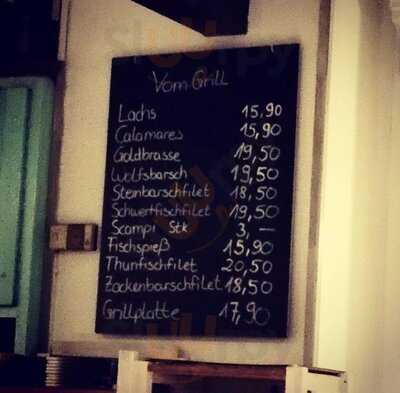 Vom Grill
Lachs 15,90
Calamares 15,90
Goldbrasse 19,50
Wolfsbarsch 19,50
Steinbarschfilet 18,50
Schwertfischfilet 19,50
Scampi Stk 3,—
Fischspieß 15,90
Thunfischfilet 20,50
Zackenbarschfilet 18,50
Grillplatte 17,90